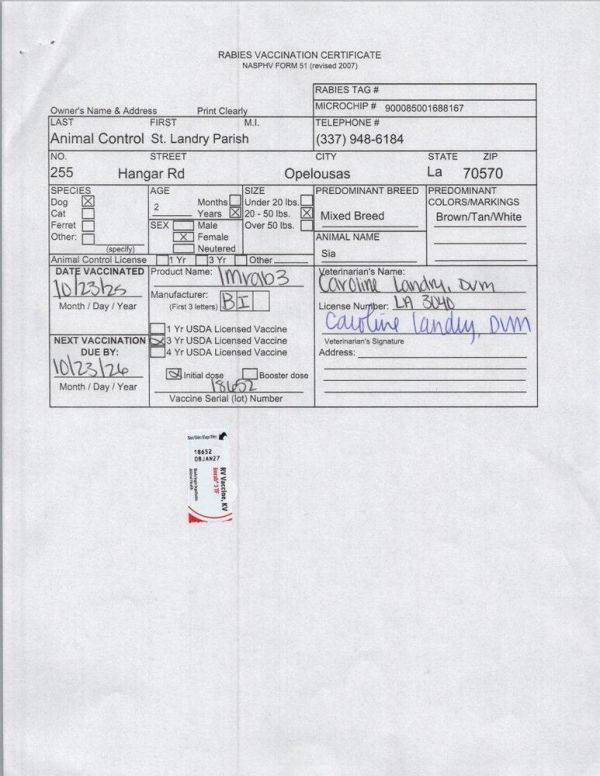 RABIES VACCINATION CERTIFICATE
NASPHV FORM 51 (revised 2007)
RABIES TAG #
Owner's Name & Address Print Clearly
MICROCHIP # 900085001688167
LAST FIRST M.I. TELEPHONE #
Animal Control St. Landry Parish (337) 948-6184
NO. STREET CITY STATE ZIP
255 Hangar Rd Opelousas La 70570
SPECIES AGE SIZE PREDOMINANT BREED PREDOMINANT
Dog Months Under 20 lbs. COLORS/MARKINGS
Cat 2 Years 20 - 50 lbs. Mixed Breed Brown/Tan/White
Ferret SEX Male Over 50 lbs.
Other: Female ANIMAL NAME
(specify) Neutered Sia
Animal Control License 1 Yr 3 Yr Other
DATE VACCINATED Product Name: Imrab3 Veterinarian's Name:
10/23/25 Caroline Landry, DVM
Month / Day / Year Manufacturer: BI License Number: LA 3040
(First 3 letters) Caroline Landry, DVM
1 Yr USDA Licensed Vaccine
NEXT VACCINATION 3 Yr USDA Licensed Vaccine Veterinarian's Signature
DUE BY: 4 Yr USDA Licensed Vaccine Address:
10/23/26 Initial dose Booster dose
Month / Day / Year 18652
Vaccine Serial (lot) Number
18652
08JAN27
RV Vaccine, KV
Imrab® 3 TF